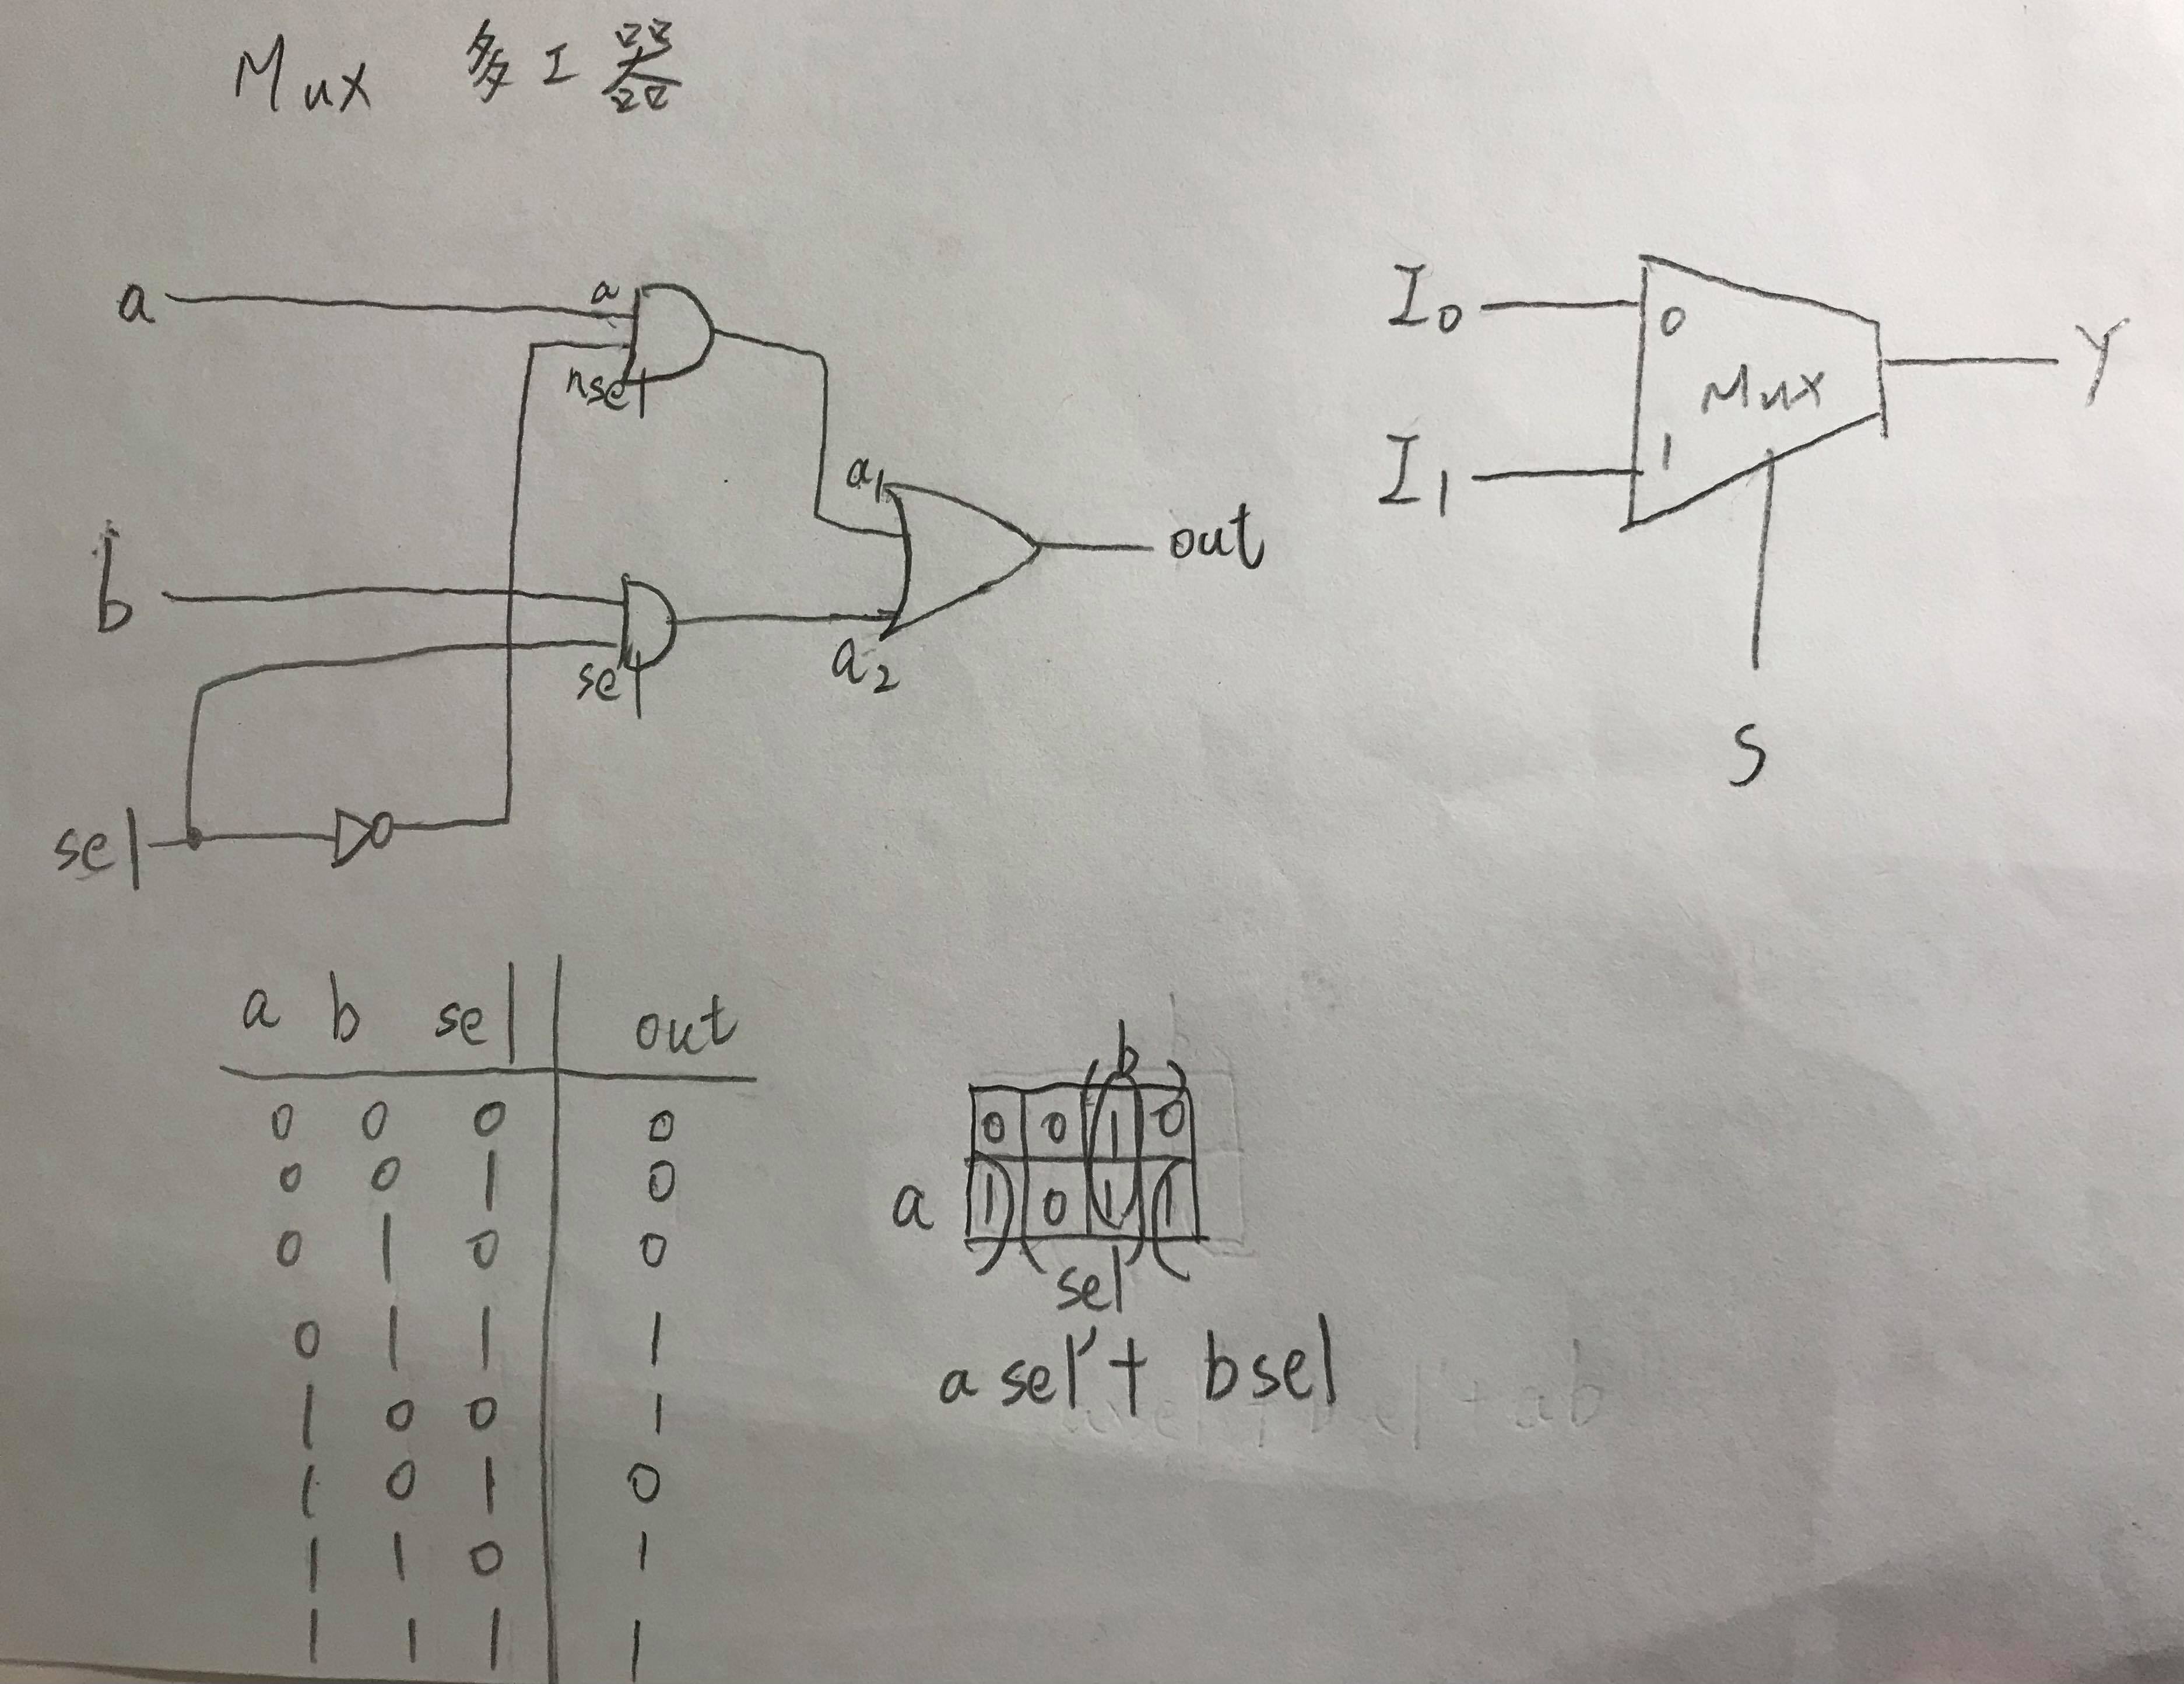 Mux 多工器
a
a
nsel
b
sel
sel
a1
a2
out
I0
I1
0
1
Mux
Y
S
a b sel out
0 0 0 0
0 0 1 0
0 1 0 0
0 1 1 1
1 0 0 1
1 0 1 0
1 1 0 1
1 1 1 1
b
0 0 1 0
a 1 0 1 1
sel
a sel' + bsel